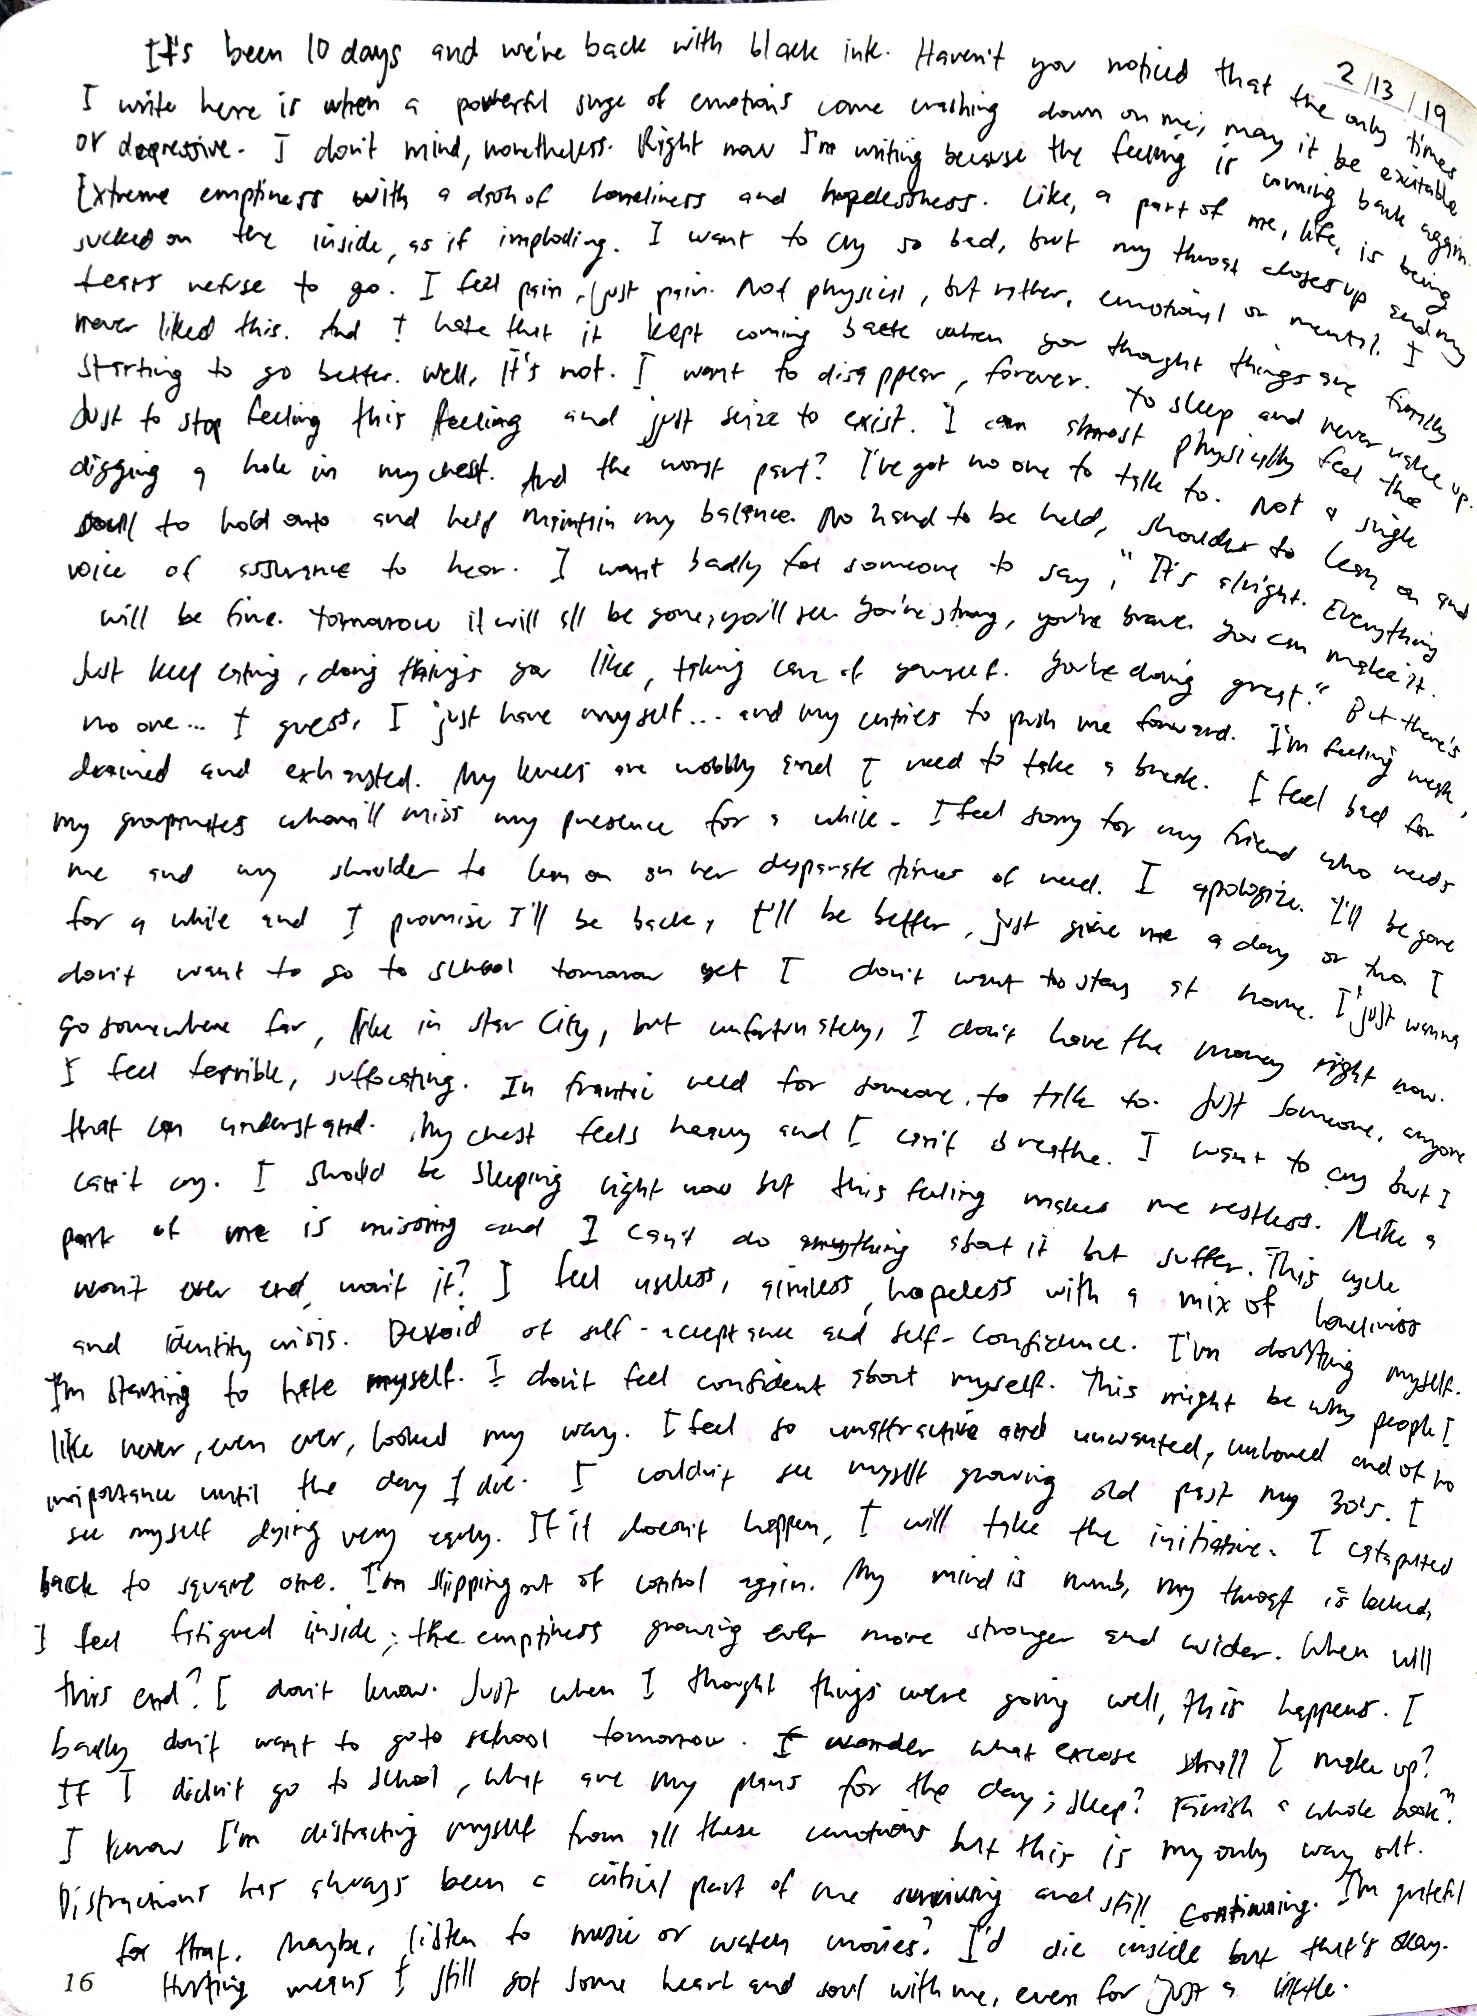 2/13/19
It's been 10 days and we're back with black ink. Haven't you noticed that the only times
I write here is when a powerful surge of emotions come crashing down on me, may it be excitable
or depressive. I don't mind, nonetheless. Right now I'm writing because the feeling is coming back again.
Extreme emptiness with a dash of loneliness and hopelessness. Like, a part of me, life, is being
sucked on the inside, as if imploding. I want to cry so bad, but my throat closes up and my
tears refuse to go. I feel pain, just pain. Not physical, but rather, emotional or mental. I
never liked this. And I hate that it kept coming back when you thought things are finally
starting to go better. Well, it's not. I want to disappear, forever. To sleep and never wake up.
Just to stop feeling this feeling and just seize to exist. I can almost physically feel the
digging a hole in my chest. And the worst part? I've got no one to talk to. Not a single
soul to hold onto and help maintain my balance. No hand to be held, shoulder to lean on and
voice of assurance to hear. I want badly for someone to say, "It's alright. Everything
will be fine. Tomorrow it will all be gone, you'll see. You're strong, you're brave. You can make it.
Just keep eating, doing things you like, taking care of yourself. You're doing great." But there's
no one... I guess, I just have myself... and my entries to push me forward. I'm feeling weak,
drained and exhausted. My knees are wobbly and I need to take a break. I feel bad for
my groupmates whom'll miss my presence for a while. I feel sorry for my friend who needs
me and my shoulder to lean on on her desparate times of need. I apologize. I'll be gone
for a while and I promise I'll be back, I'll be better, just give me a day or two. I
don't want to go to school tomorrow yet I don't want to stay at home. I just wanna
go somewhere far, like in Star City, but unfortunately, I don't have the money right now.
I feel terrible, suffocating. In frantic need for someone to talk to. Just someone, anyone
that can understand. My chest feels heavy and I can't breathe. I want to cry but I
can't cry. I should be sleeping right now but this feeling makes me restless. Like a
part of me is missing and I can't do anything about it but suffer. This cycle
won't ever end, won't it? I feel useless, aimless, hopeless with a mix of loneliness
and identity crisis. Devoid of self-acceptance and self-confidence. I'm doubting myself.
I'm starting to hate myself. I don't feel confident about myself. This might be why people I
like never, even ever, looked my way. I feel so unattractive and unwanted, unloved and of no
importance until the day I die. I couldn't see myself growing old past my 30's. I
see myself dying very early. If it doesn't happen, I will take the initiative. I catapulted
back to square one. I'm slipping out of control again. My mind is numb, my throat is locked,
I feel fatigued inside; the emptiness growing ever more stronger and wider. When will
this end? I don't know. Just when I thought things were going well, this happens. I
badly don't want to go to school tomorrow. I wonder what excuse shall I make up?
If I didn't go to school, what are my plans for the day; sleep? Finish a whole book?
I know I'm distracting myself from all these emotions but this is my only way out.
Distractions has always been a critical part of me surviving and still continuing. I'm grateful
for that. Maybe, listen to music or watch movies? I'd die inside but that's okay.
Hurting means I still got some heart and soul with me, even for just a little.
16